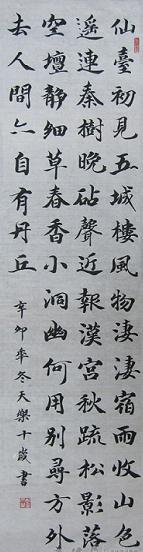 仙臺初見五城樓風物淒淒宿雨收山色
遙連秦樹晚砧聲近報漢宮秋疏松影落
空壇靜細草春香小洞幽何用別尋方外
去人間亦自有丹丘
辛卯年冬天樂十歲書